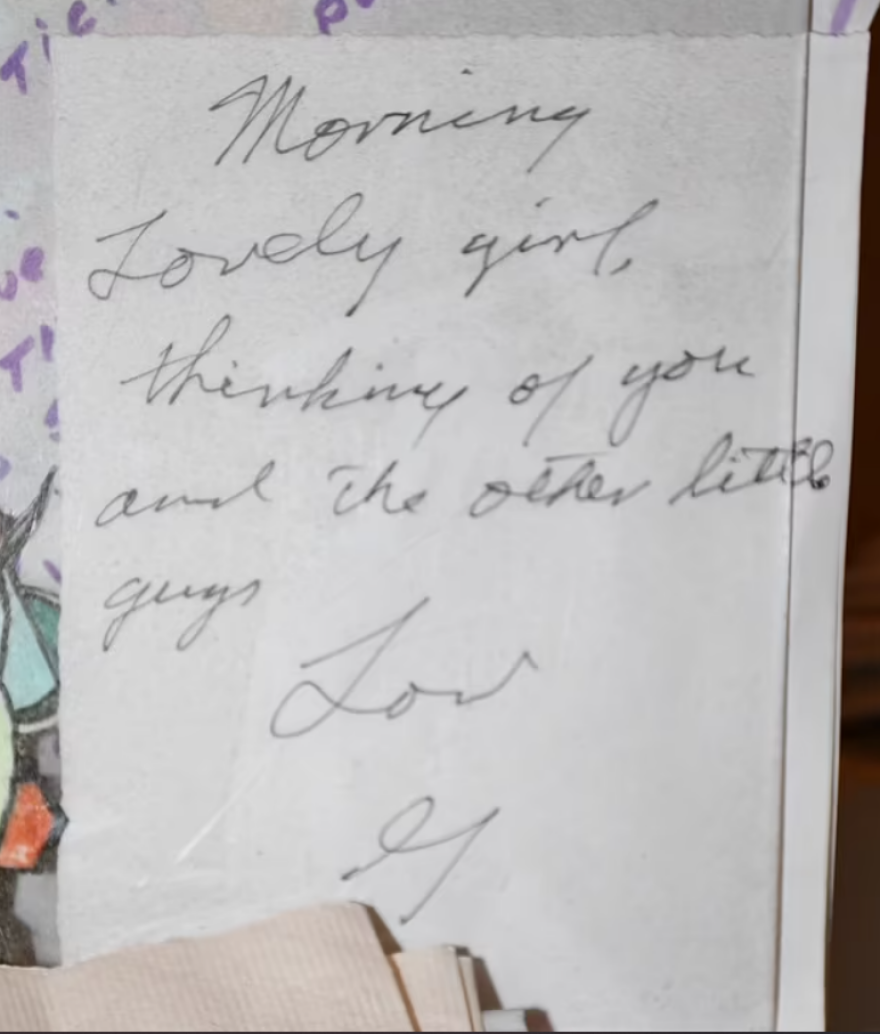 Morning
Lovely girl,
thinking of you
and the other little
guys
Lov